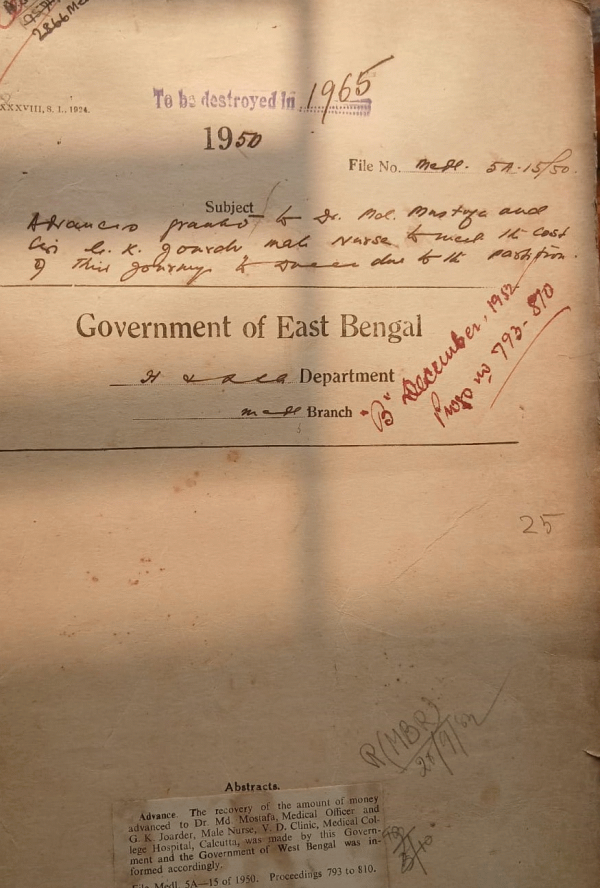 2866 Med
XXXVIII, S. I., 1924.
To be destroyed in 1965
1950
File No. Medl. 5A-15/50.
Subject
Advances granted to Dr. Md. Mustafa and
G. K. Joardar male Nurse to meet the cost
of their journey to Dacca due to the Partition.
Government of East Bengal
H & Department
Medl Branch
"B" December, 1952
Progs no 793-810
25
R(MBR)
Abstracts.
Advance. The recovery of the amount of money
advanced to Dr. Md. Mostafa, Medical Officer and
G. K. Joarder, Male Nurse, V. D. Clinic, Medical Col-
lege Hospital, Calcutta, was made by this Govern-
ment and the Government of West Bengal was in-
formed accordingly.
File Medl. 5A—15 of 1950. Proceedings 793 to 810.